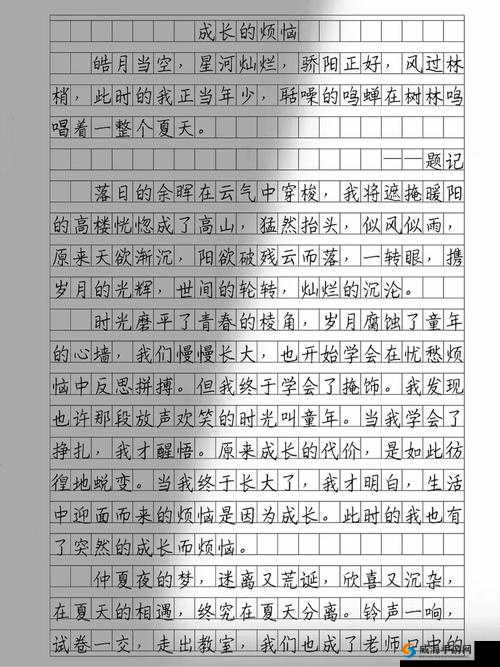 成长的烦恼
皓月当空，星河灿烂，骄阳正好，风过林
梢，此时的我正当年少，聒噪的鸣蝉在树林鸣
唱着一整个夏天。
——题记
落日的余晖在云气中穿梭，我将遮掩暖阳
的高楼恍惚成了高山，猛然抬头，似风似雨，
原来天欲渐沉，阳欲破残云而落，一转眼，携
岁月的光辉，世间的轮转，灿烂的沉沦。
时光磨平了青春的棱角，岁月腐蚀了童年
的心墙，我们慢慢长大，也开始学会在忧愁烦
恼中反思拼搏。但我终于学会了掩饰。我发现
也许那段放声欢笑的时光叫童年。当我学会了
挣扎，我才醒悟。原来成长的代价，是如此彷
徨地蜕变。当我终于长大了，我才明白，生活
中迎面而来的烦恼是因为成长。此时的我也有
了突然的成长而烦恼。
仲夏夜的梦，迷离又荒诞，欣喜又沉杂，
在夏天的相遇，终究在夏天分离。铃声一响，
试卷一交，走出教室，我们也成了老师口中的
威海手游网